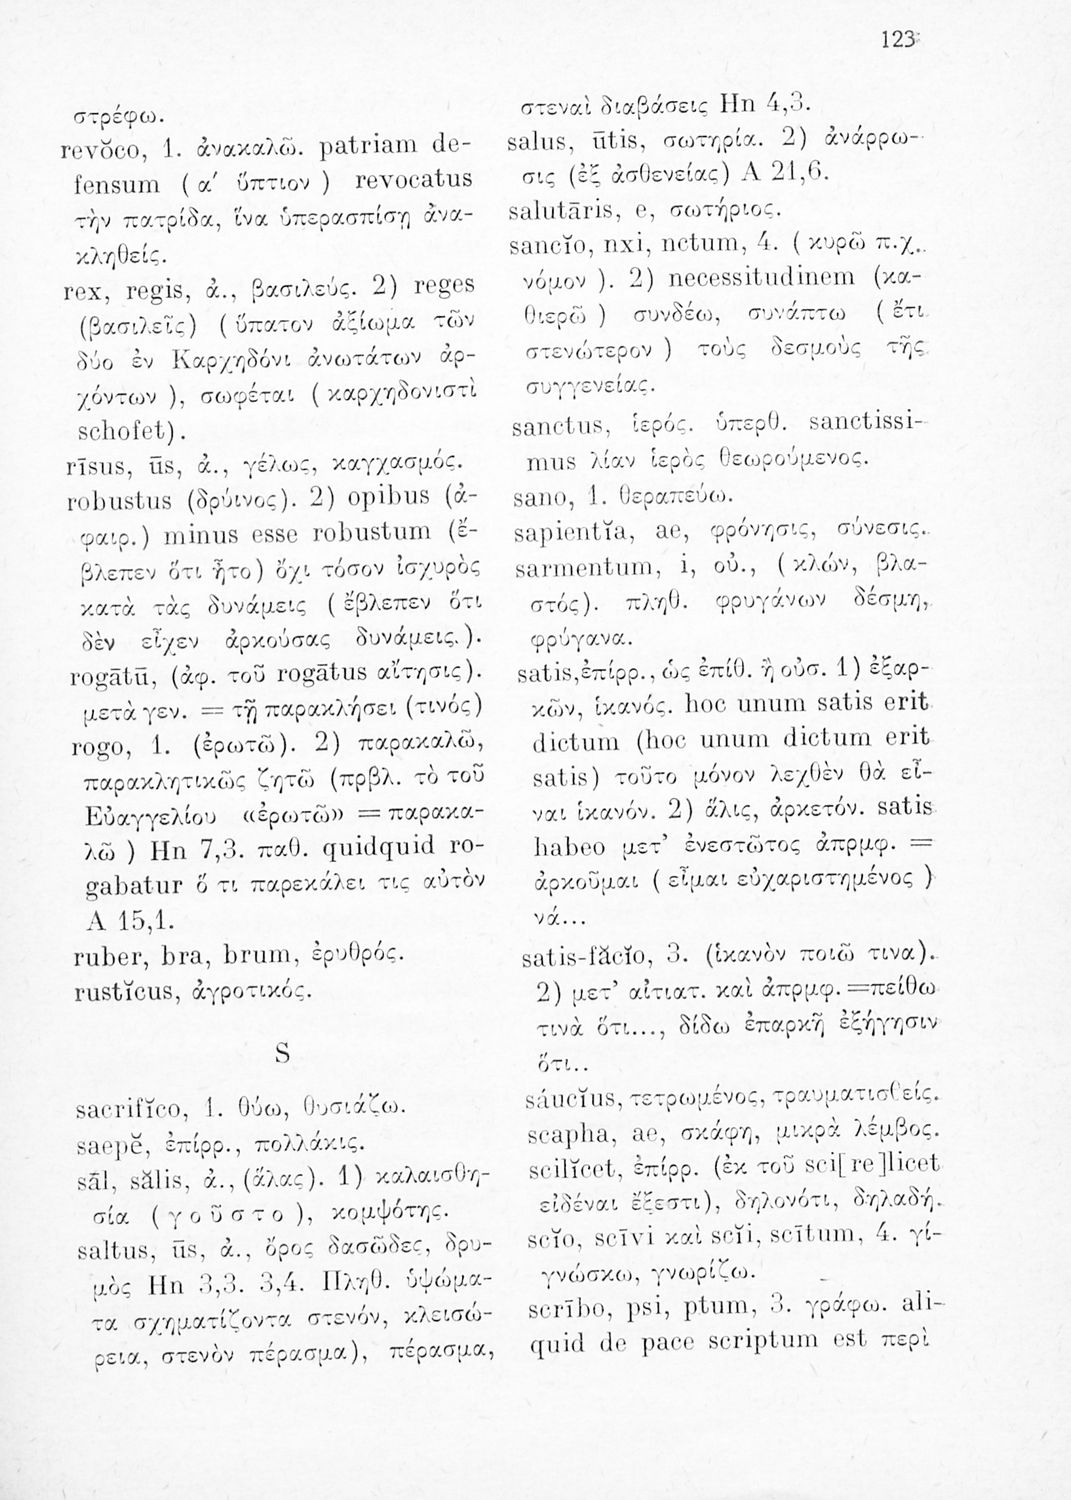 123
στρέφω.
revŏco, 1. ἀνακαλῶ. patriam de-
fensum ( α′ ὕπτιον ) revocatus
τὴν πατρίδα, ἵνα ὑπερασπίσῃ ἀνα-
κληθείς.
rex, regis, ἀ., βασιλεύς. 2) reges
(βασιλεῖς) ( ὕπατον ἀξίωμα τῶν
δύο ἐν Καρχηδόνι ἀνωτάτων ἀρ-
χόντων ), σωφέται ( καρχηδονιστὶ
schofet).
rīsus, ūs, ἀ., γέλως, καγχασμός.
robustus (δρύινος). 2) opibus (ἀ-
φαιρ.) minus esse robustum (ἔ-
βλεπεν ὅτι ἦτο) ὄχι τόσον ἰσχυρὸς
κατὰ τὰς δυνάμεις ( ἔβλεπεν ὅτι
δὲν εἶχεν ἀρκούσας δυνάμεις.).
rogātū, (ἀφ. τοῦ rogātus αἴτησις).
μετὰ γεν. = τῇ παρακλήσει (τινός)
rogo, 1. (ἐρωτῶ). 2) παρακαλῶ,
παρακλητικῶς ζητῶ (πρβλ. τὸ τοῦ
Εὐαγγελίου «ἐρωτῶ» = παρακα-
λῶ ) Hn 7,3. παθ. quidquid ro-
gabatur ὅ τι παρεκάλει τις αὐτὸν
A 15,1.
ruber, bra, brum, ἐρυθρός.
rustĭcus, ἀγροτικός.
S
sacrifĭco, 1. θύω, θυσιάζω.
saepĕ, ἐπίρρ., πολλάκις.
sāl, sălis, ἀ., (ἅλας). 1) καλαισθη-
σία ( γοῦστο ), κομψότης.
saltus, ūs, ἀ., ὄρος δασῶδες, δρυ-
μὸς Hn 3,3. 3,4. Πληθ. ὑψώμα-
τα σχηματίζοντα στενόν, κλεισώ-
ρεια, στενὸν πέρασμα), πέρασμα,
στεναὶ διαβάσεις Hn 4,3.
salus, ūtis, σωτηρία. 2) ἀνάρρω-
σις (ἐξ ἀσθενείας) A 21,6.
salutāris, e, σωτήριος.
sancĭo, nxi, nctum, 4. ( κυρῶ π.χ.
νόμον ). 2) necessitudinem (κα-
θιερῶ ) συνδέω, συνάπτω ( ἔτι
στενώτερον ) τοὺς δεσμοὺς τῆς
συγγενείας.
sanctus, ἱερός. ὑπερθ. sanctissi-
mus λίαν ἱερὸς θεωρούμενος.
sano, 1. θεραπεύω.
sapientĭa, ae, φρόνησις, σύνεσις.
sarmentum, i, οὐ., ( κλών, βλα-
στός). πληθ. φρυγάνων δέσμη,
φρύγανα.
satis,ἐπίρρ., ὡς ἐπίθ. ἢ οὐσ. 1) ἐξαρ-
κῶν, ἱκανός. hoc unum satis erit
dictum (hoc unum dictum erit
satis) τοῦτο μόνον λεχθὲν θὰ εἶ-
ναι ἱκανόν. 2) ἅλις, ἀρκετόν. satis
habeo μετ’ ἐνεστῶτος ἀπρμφ. =
ἀρκοῦμαι ( εἶμαι εὐχαριστημένος )
νά...
satis-făcĭo, 3. (ἱκανὸν ποιῶ τινα).
2) μετ’ αἰτιατ. καὶ ἀπρμφ.=πείθω
τινὰ ὅτι..., δίδω ἐπαρκῆ ἐξήγησιν
ὅτι..
sáucĭus, τετρωμένος, τραυματισθείς.
scapha, ae, σκάφη, μικρὰ λέμβος.
scilĭcet, ἐπίρρ. (ἐκ τοῦ sci[re]licet
εἰδέναι ἔξεστι), δηλονότι, δηλαδή.
scĭo, scīvi καὶ scĭi, scītum, 4. γί-
γνώσκω, γνωρίζω.
scrībo, psi, ptum, 3. γράφω. ali-
quid de pace scriptum est περὶ